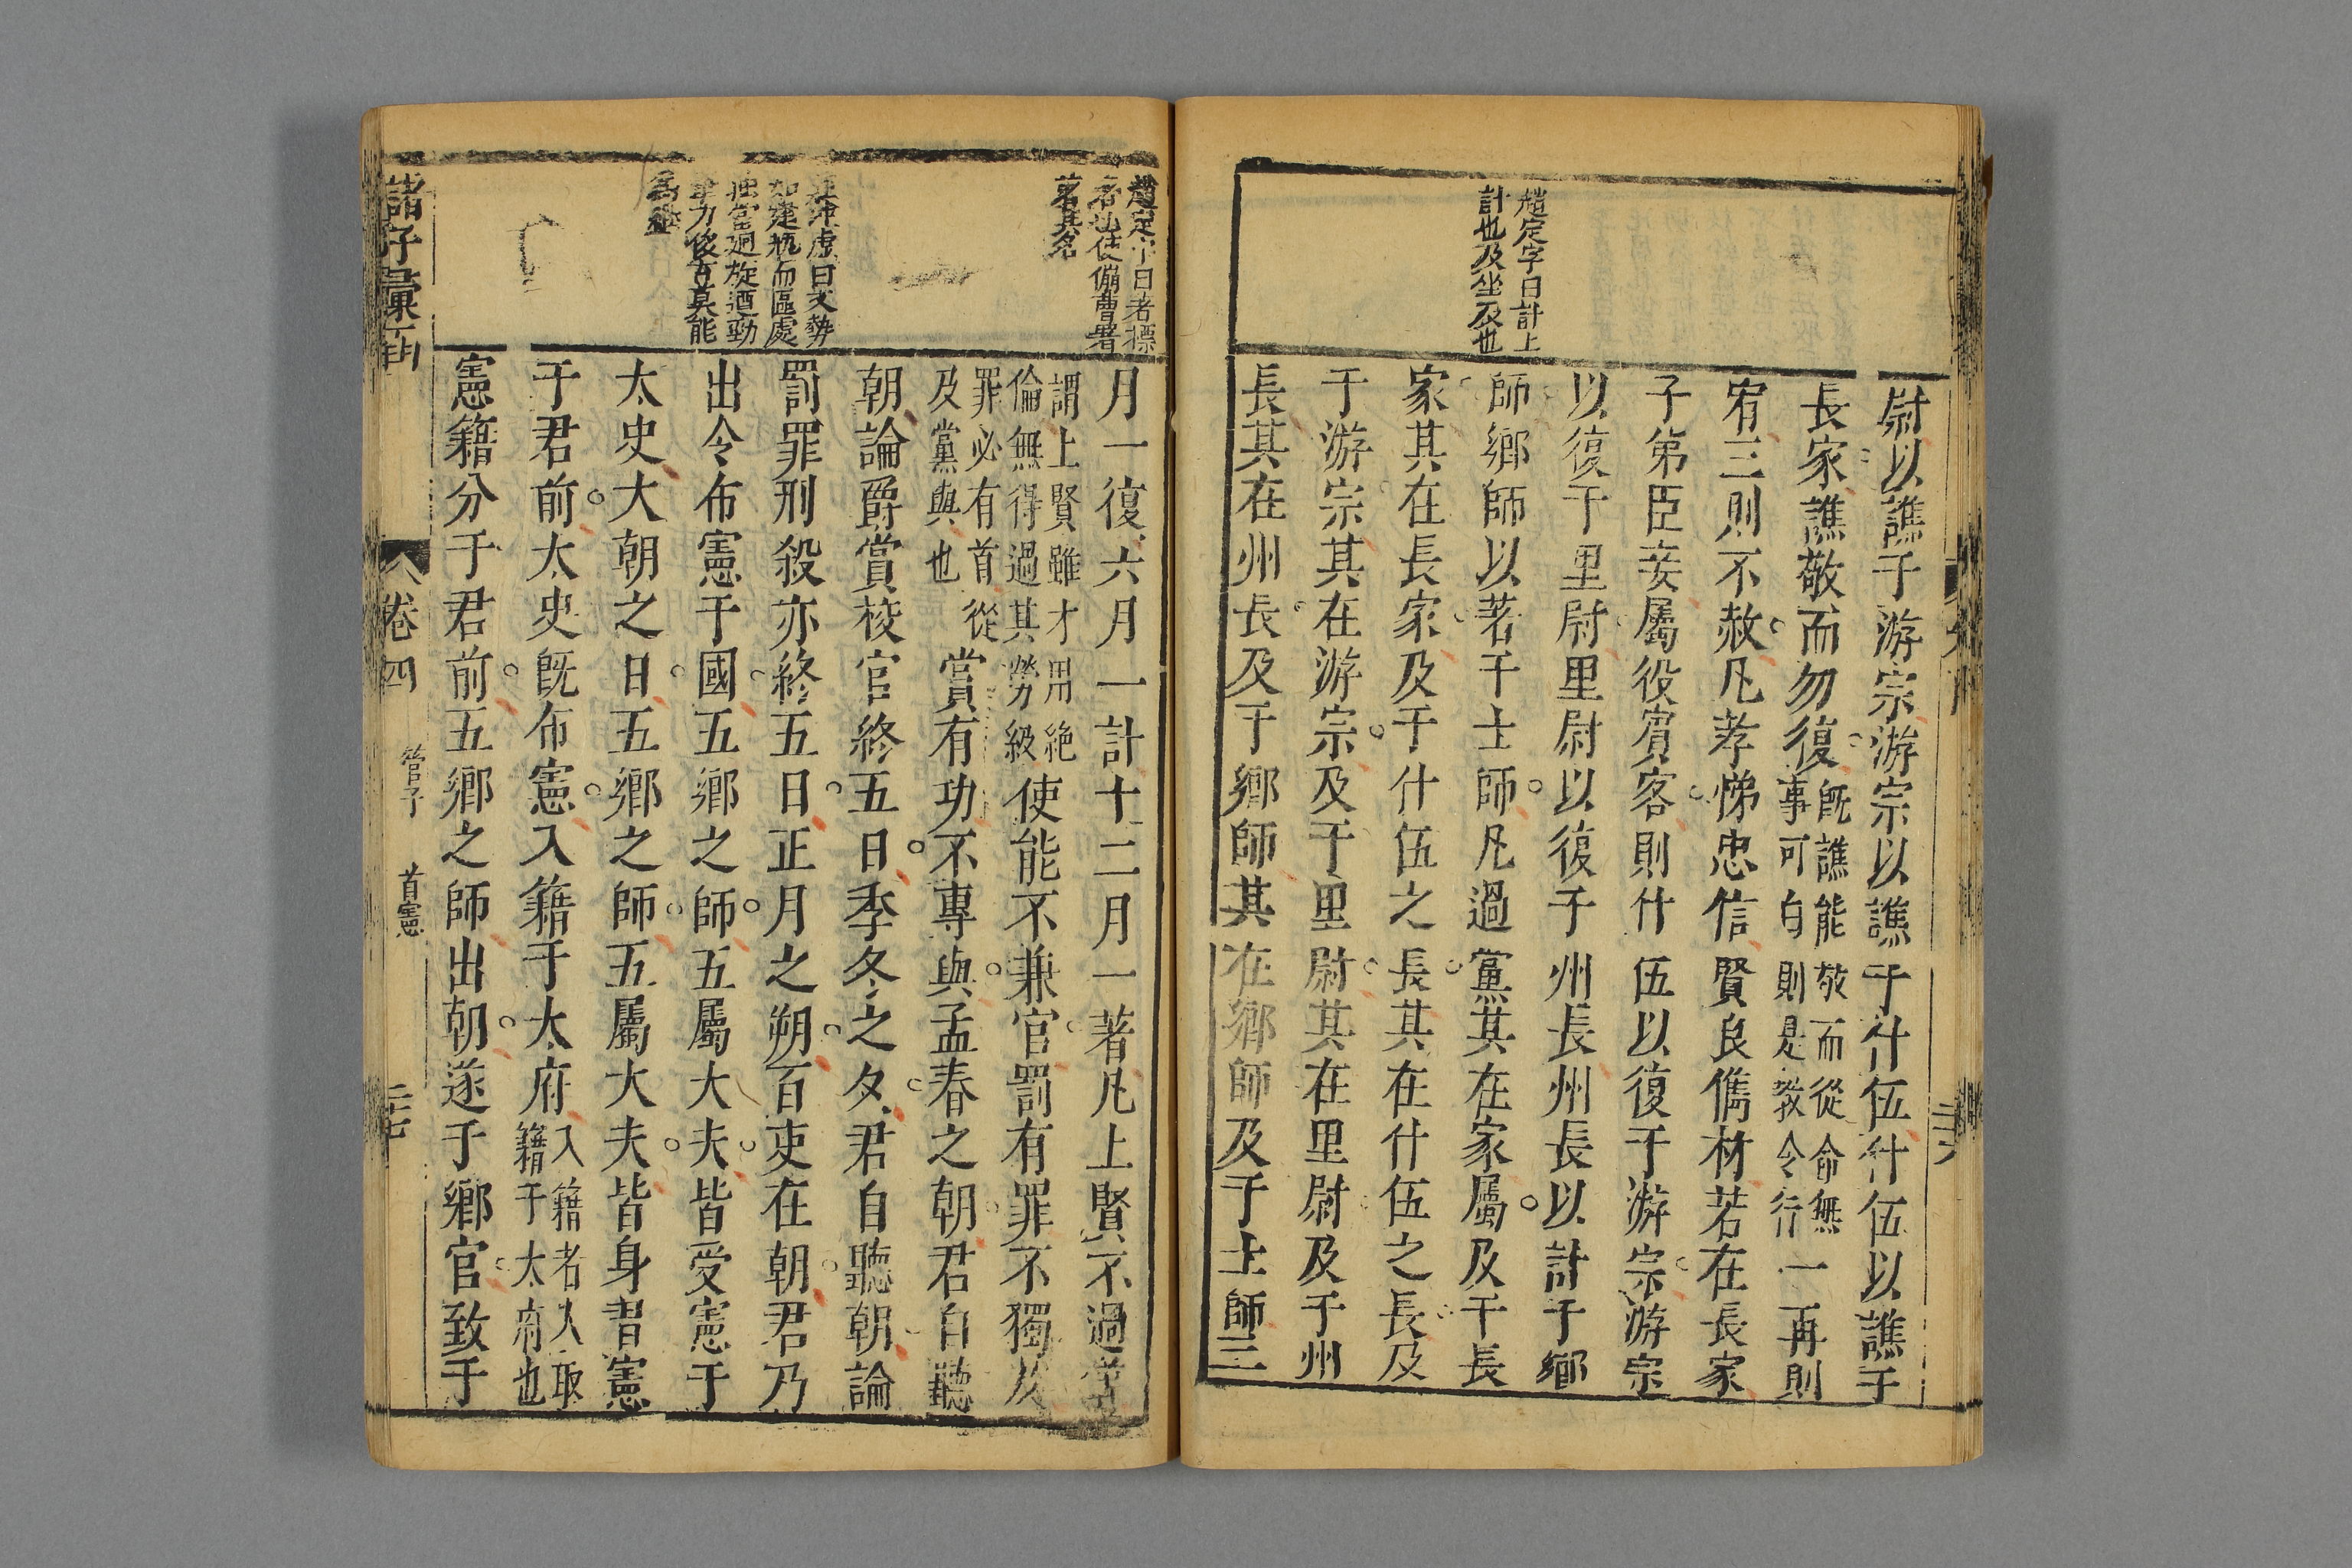 趙定宇曰計上
計也及坐及也
尉以譙于游宗游宗以譙于什伍什伍以譙于
長家譙敬而勿復既譙能敬而從命無
事可白則是教令行一再則
宥三則不赦凡孝悌忠信賢良儁材若在長家
子弟臣妾屬役賓客則什伍以復于游宗游宗
以復于里尉里尉以復于州長州長以計于鄉
師鄉師以著于士師凡過黨其在家屬及于長
家其在長家及于什伍之長其在什伍之長及
于游宗其在游宗及于里尉其在里尉及于州
長其在州長及于鄉師其在鄉師及于士師三
趙定宇曰者標
名也使備曹署
著其名
虛曰文勢
如建瓴而區處
迴旋遒勁
筆力後百莫能
月一復六月一計十二月一著凡上賢不過等
謂上賢雖才用絶
倫無得過其勞級使能不兼官罰有罪不獨及
罪必有首從
及黨與也賞有功不專與孟春之朝君自聽
朝論爵賞校官終五日季冬之夕君自聽朝論
罰罪刑殺亦終五日正月之朔百吏在朝君乃
出令布憲于國五鄉之師五屬大夫皆受憲于
太史大朝之日五鄉之師五屬大夫皆身習憲
于君前太史既布憲入籍于太府入籍者入取
籍于太府也
憲籍分于君前五鄉之師出朝遂于鄉官致于
諸子彙函
卷四
管子
首憲
二十七